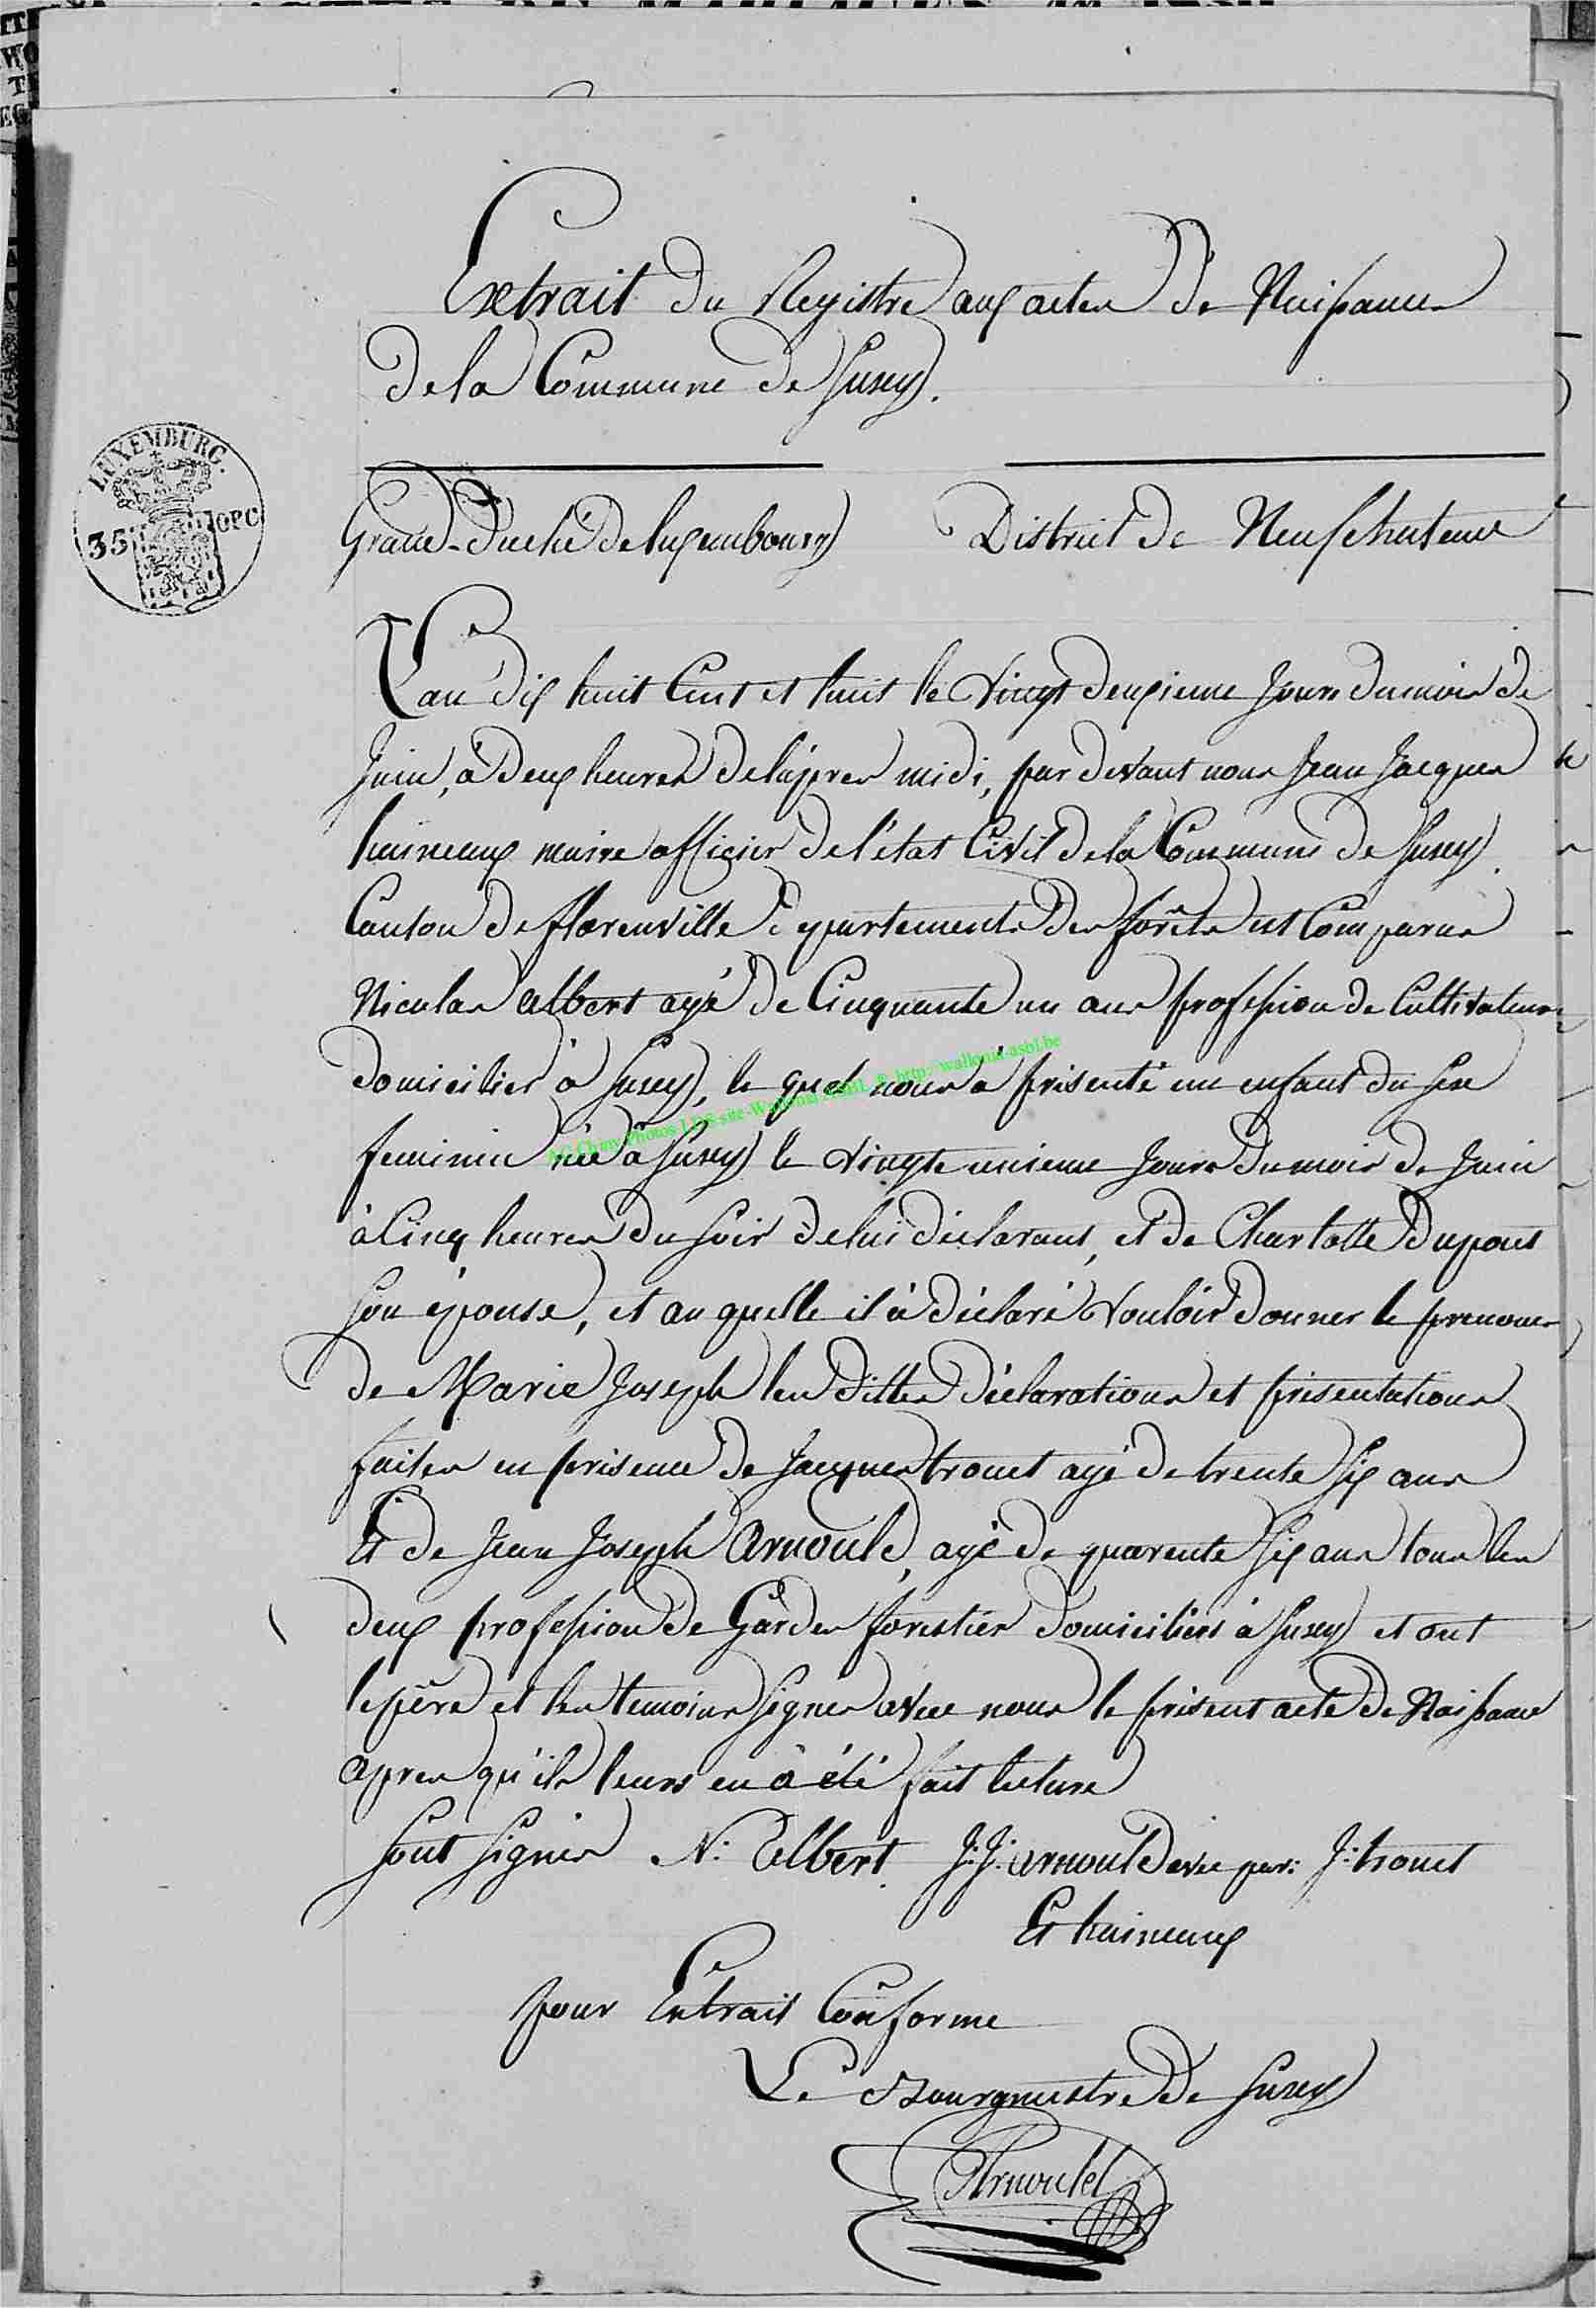 Extrait du Registre aux actes de Naissances
de la Commune de Suxy.
LUXEMBURG.
35 OPC
Grand-Duché de luxembourg District de Neufchateau
L'an dix huit Cent et huit le Vingt deuxieme Jours du mois de
Juin, à deux heures de l'apres midi, par devant nous Jean Jacques
huineaux maire officier de l'état Civil de la Commune de Suxy.
Canton de florenville départements des forêts est Comparus
Nicolas Albert agé de Cinquante un ans profession de Cultivateurs
domiciliés à Suxy, le quel nous à présenté un enfant du sexe
feminin née à Suxy le vingte unieme Jours du mois de Juin
à Cinq heures du soir de lui déclarant, et de Charlotte Dupont
son épouse, et au quelle il à déclaré Vouloir donner le prenoms
de Marie Joseph les dittes déclarations et présentations
faites en présence de Jacques trouet agé de trente six ans
Et de Jean Joseph Arnould, agé de quarente six ans tous les
deux profession de Gardes forestier domiciliés à Suxy et ont
le père et les temoins signes avec nous le présent acte de Naissance
apres qu'ils leurs en à été fait lecture
sont signés N: Albert J: J: arnould avec par: J: trouet
Et huineaux
pour Extrait Conforme
Le Bourgmestre de Suxy
Arnould
AG Chiny Photos LDS site-Wallonia ASBL © http://wallonia-asbl.be